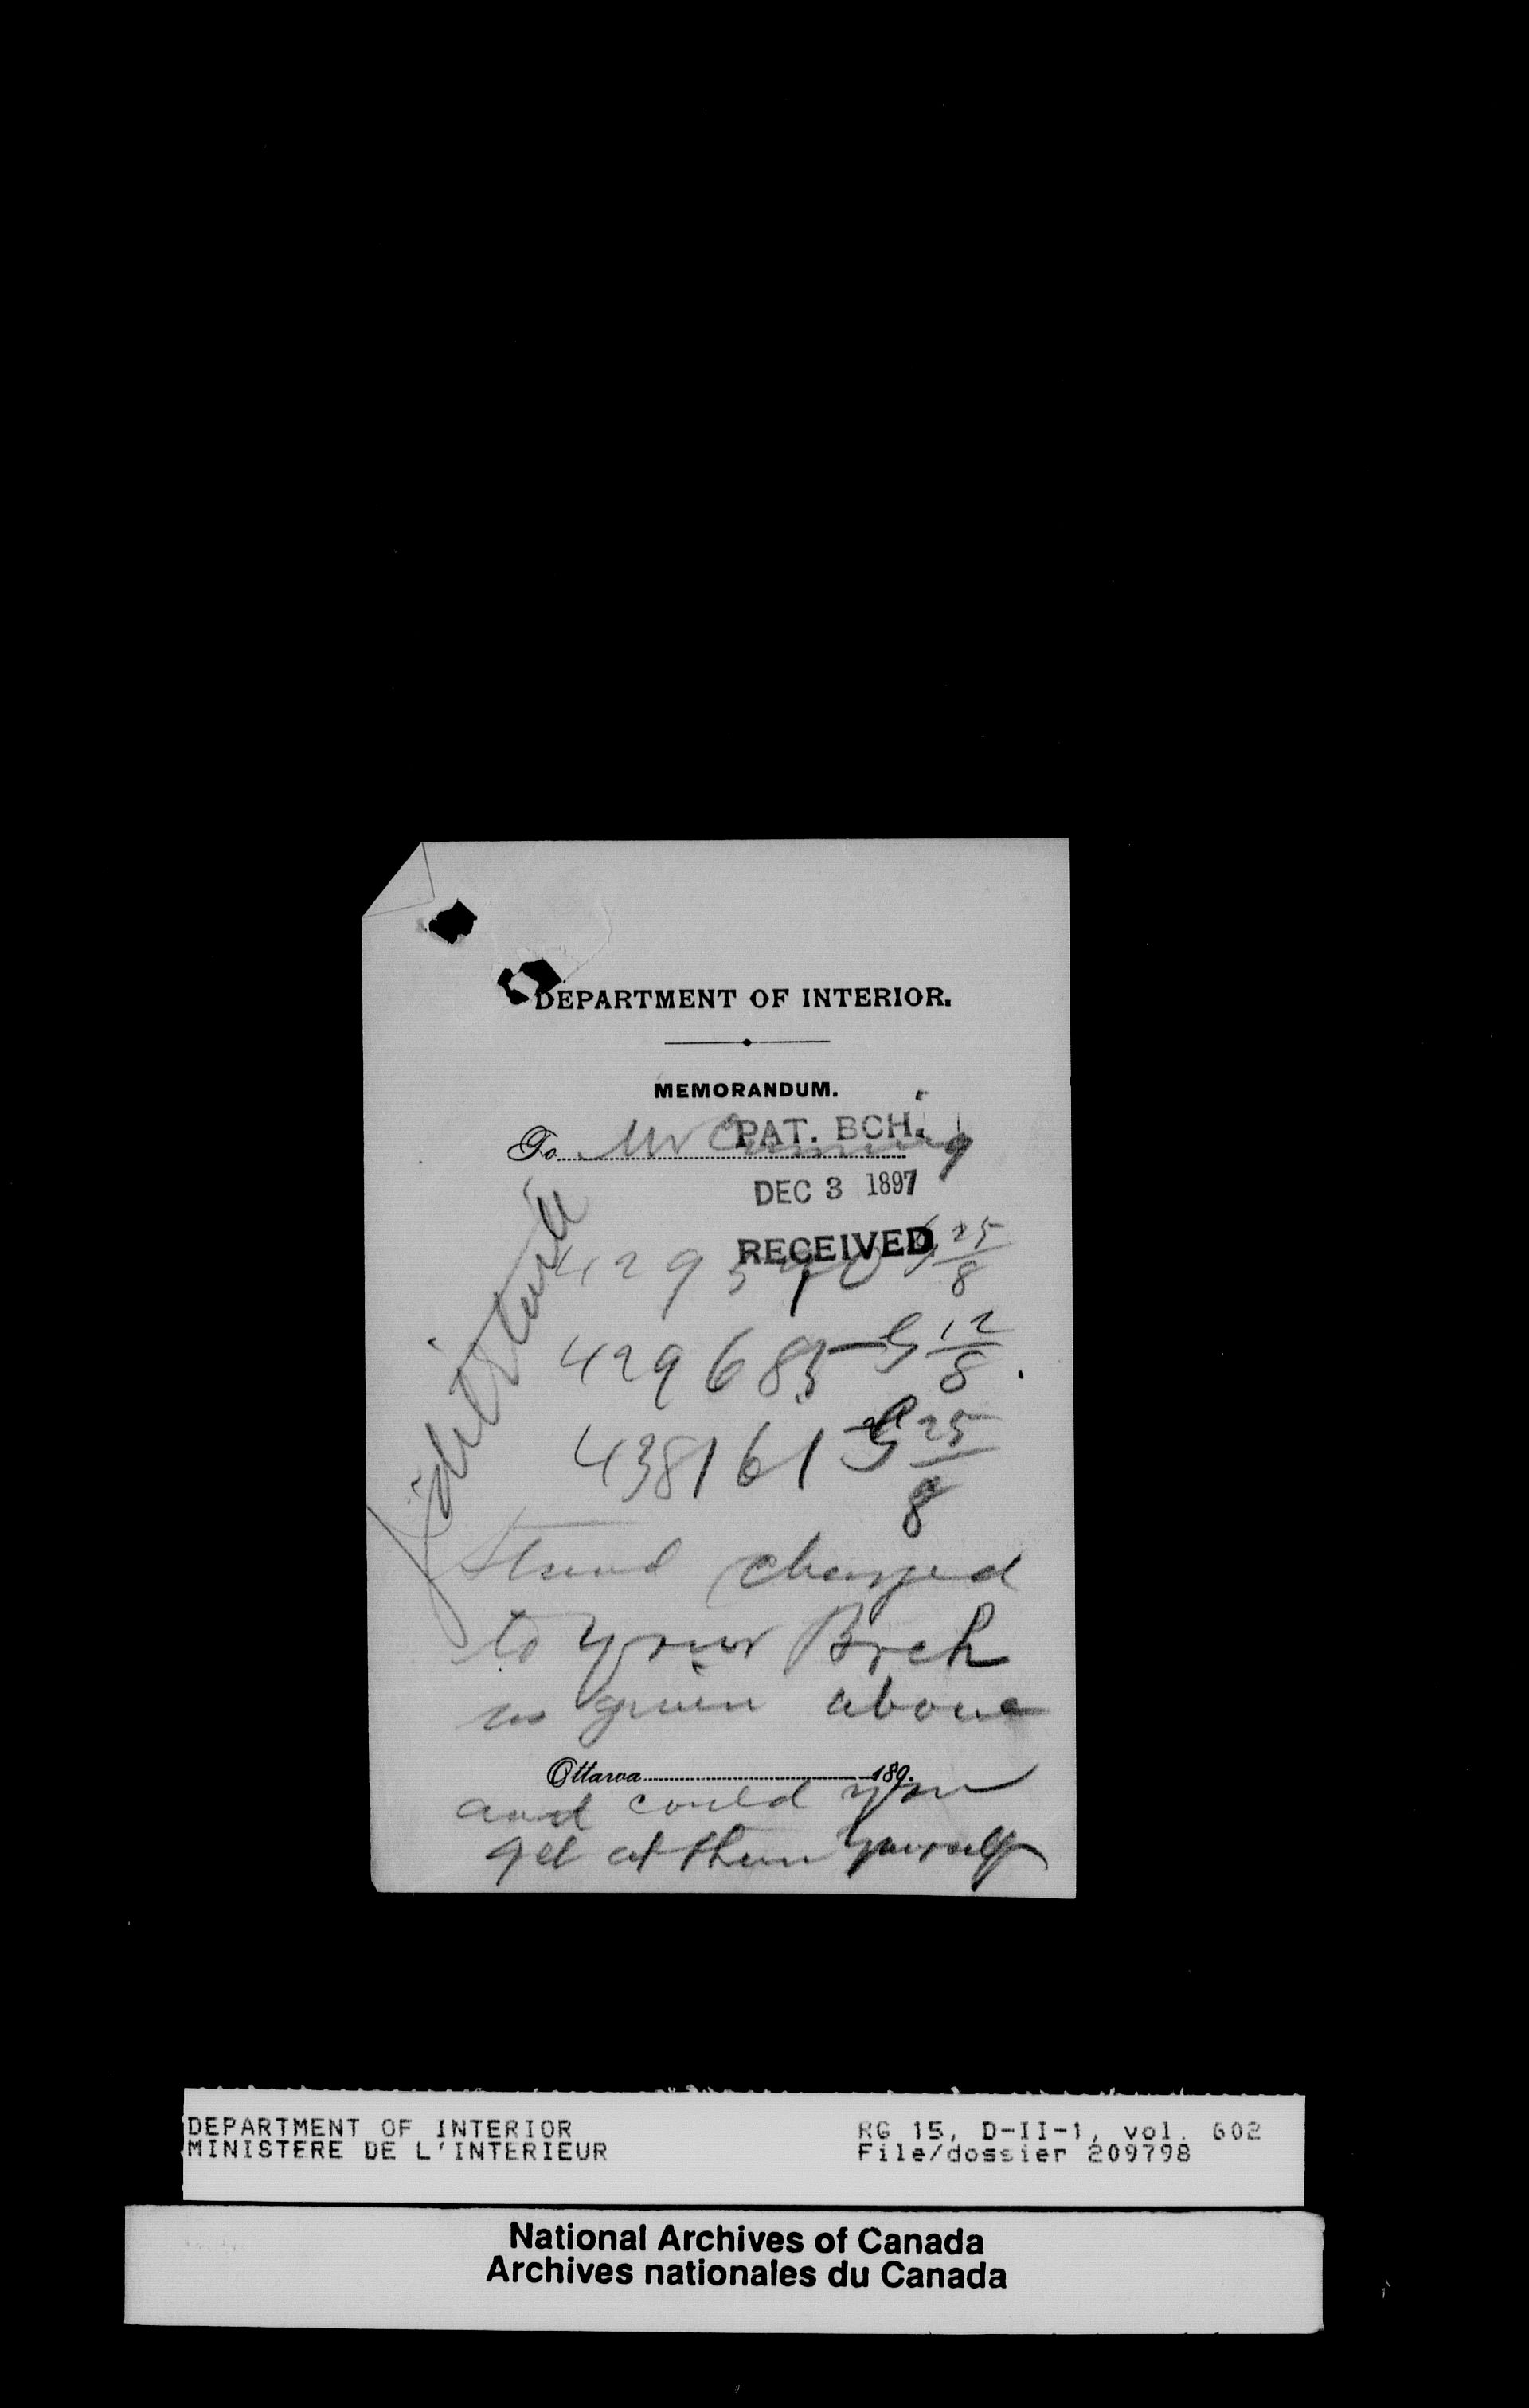 DEPARTMENT OF INTERIOR.
MEMORANDUM.
To Mr Cumming
PAT. BCH.
DEC 3 1897
RECEIVED
429 G 25/8
429685 G 12/8.
438161 G 25/8
Stand charged
to your Brch
as given above
Ottawa 189.
and could you
get at them yourself
DEPARTMENT OF INTERIOR
MINISTERE DE L'INTERIEUR
RG 15, D-II-1, vol. 602
File/dossier 209798
National Archives of Canada
Archives nationales du Canada